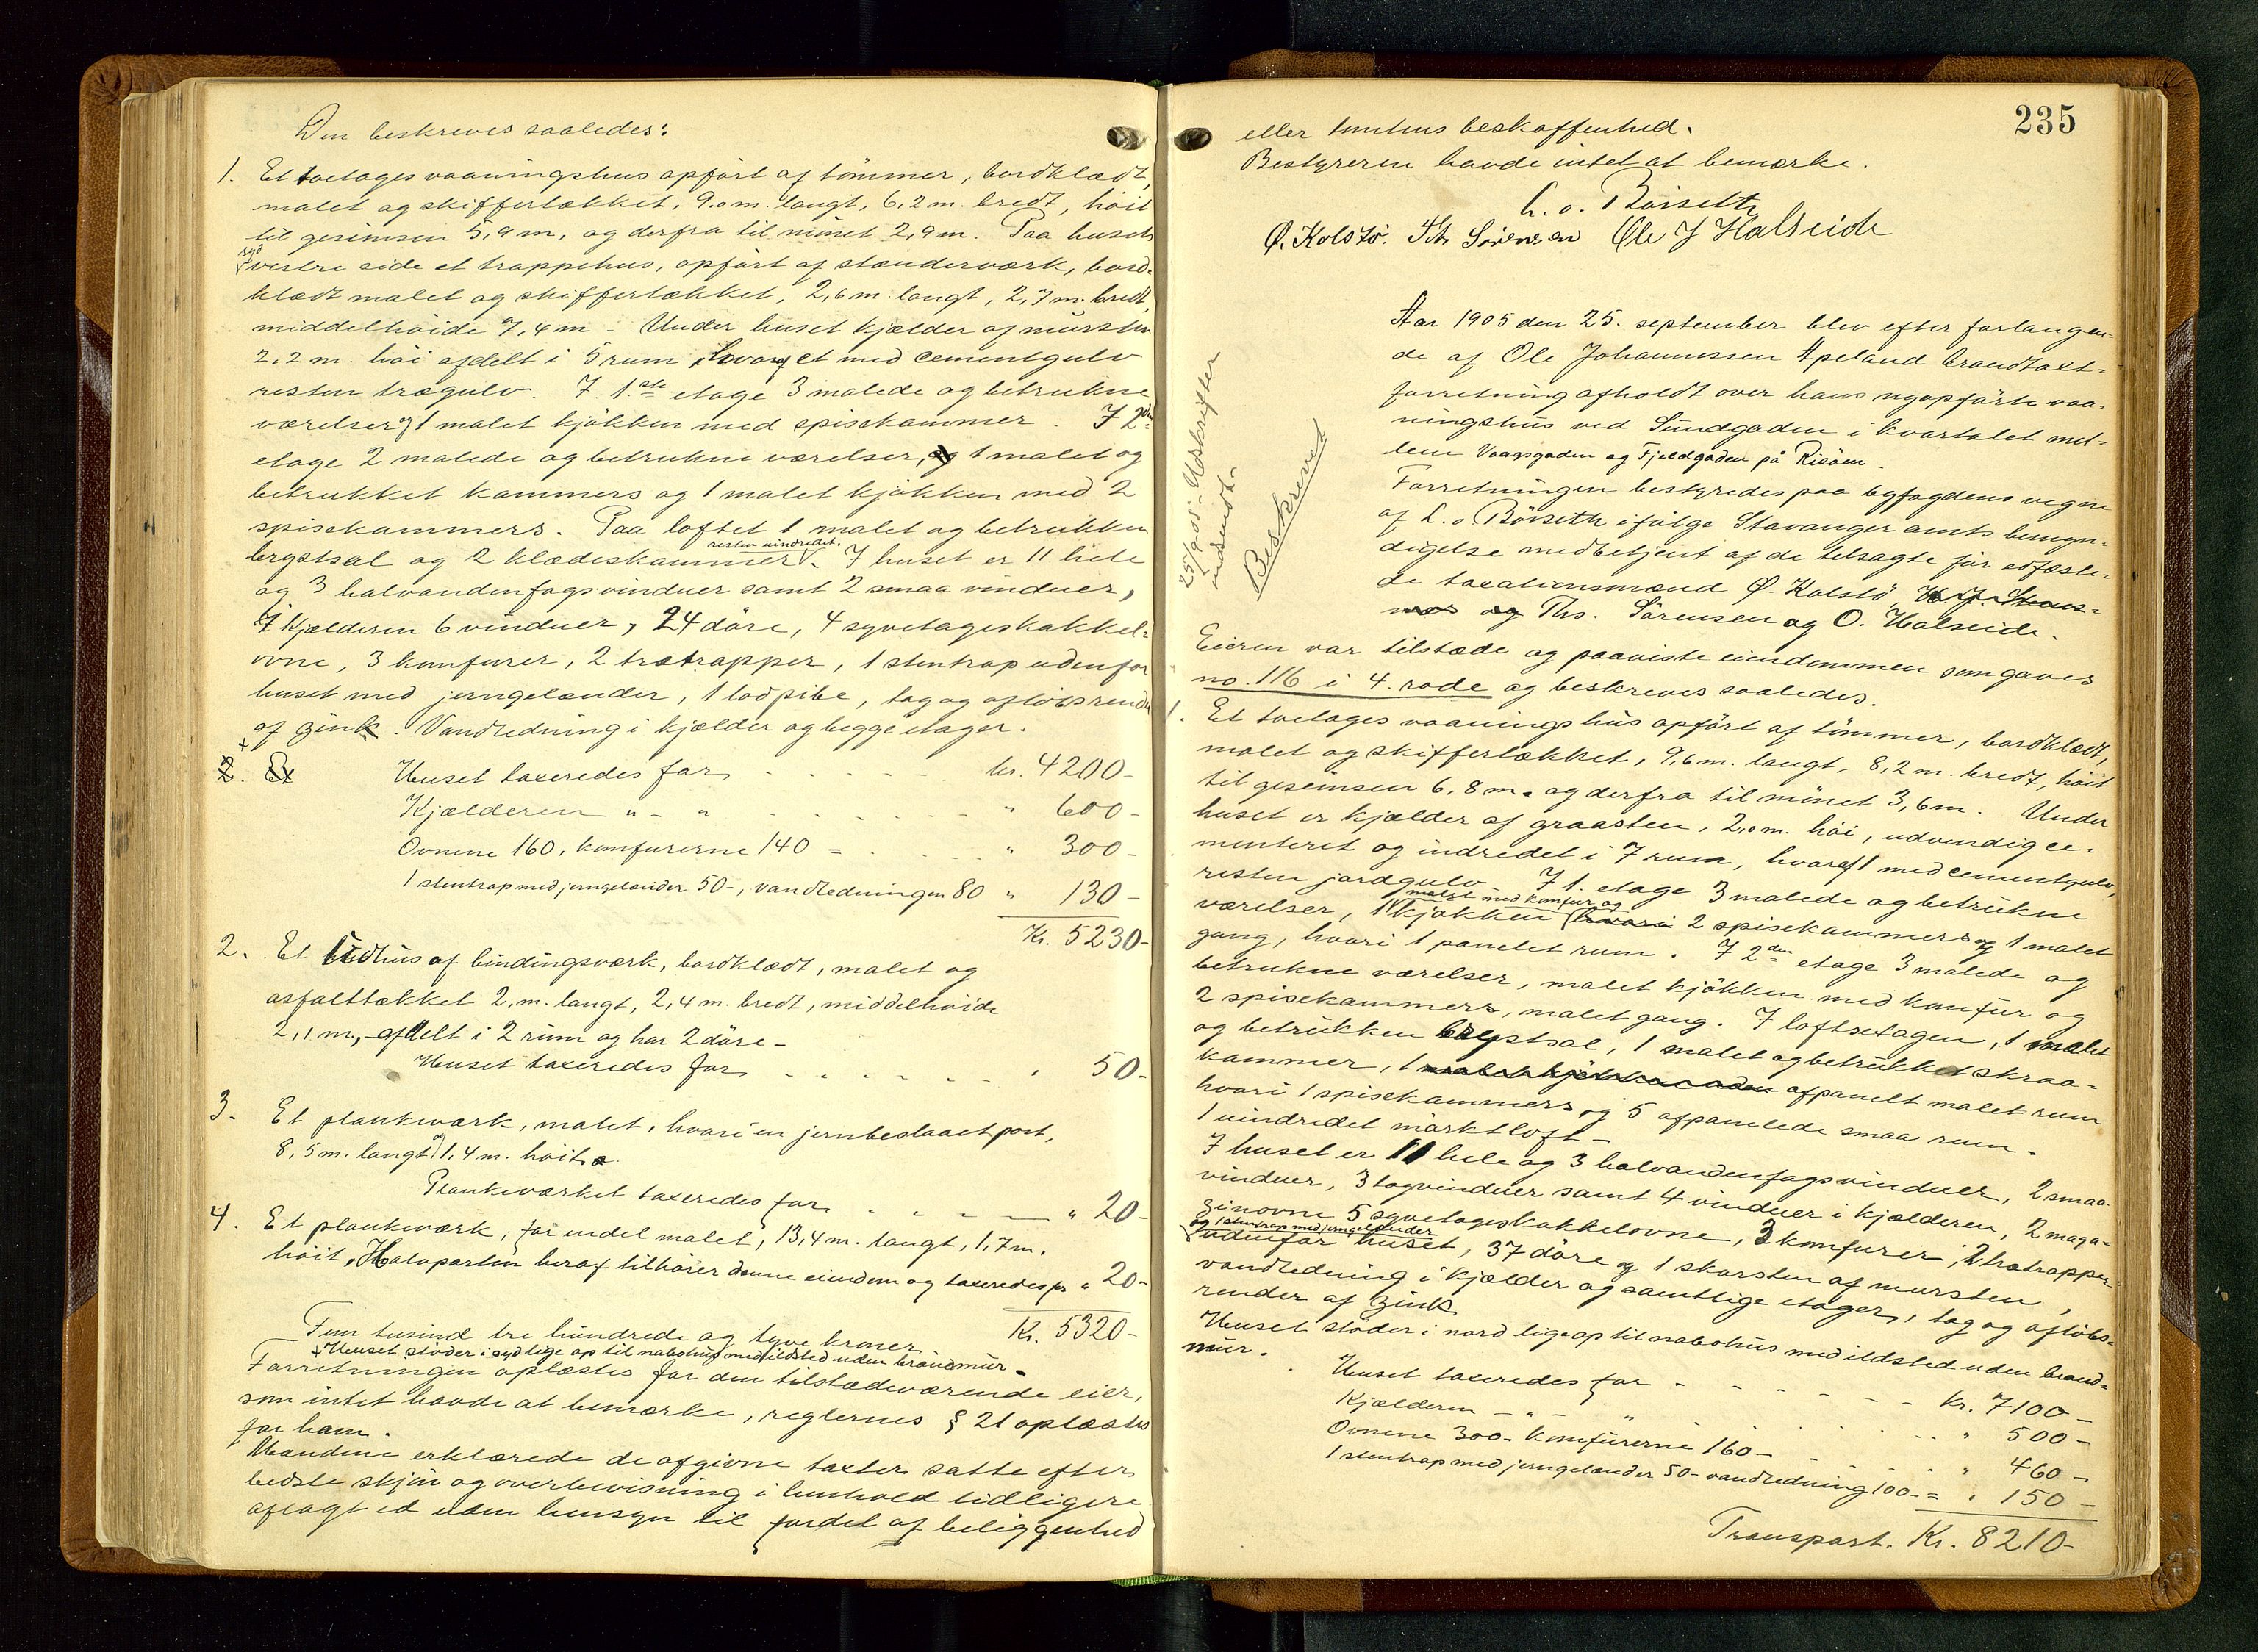 Den beskreves saaledes:
1. Et toetages vaaningshus opført af tømmer, bordklædt,
malet og skiffertækket, 9.0 m. langt, 6,2 m. bredt, höit
til gesimsen 5,9 m, og derfra til mönet 2,9 m. Paa husets
vestre side et trappehus, opført af stænderværk, bord-
klædt malet og skiffertækket, 2,6 m. langt, 2,7 m. bredt,
middelhöide 7,4 m - Under huset kjælder af mursten
2,2 m. höi afdelt i 5 rum, hvoraf et med cementgulv
resten trægulv. I 1.ste etage 3 malede og betrukne
værelser og 1 malet kjökken med spisekammer. I 2den
etage 2 malede og betrukne værelser, 1 malet og
betrukket kammers og 1 malet kjökken med 2
spisekammers. Paa loftet 1 malet og betrukken
resten uindredet.
brystsal og 2 klædeskammer. I huset er 11 hele
og 3 halvandenfagsvinduer samt 2 smaa vinduer,
I kjælderen 6 vinduer, 24 döre, 4 syvetageskakkel-
ovne, 3 komfurer, 2 trætrapper, 1 stentrap udenfor
huset med jerngelænder, 1 lodpibe, tag og aflöbsrender
af zink. Vandledning i kjælder og begge etager.
2. Et Huset taxeredes for kr. 4200-
Kjælderen " - " " 600-
Ovnene 160, komfurerne 140 = " 300-
1 stentrap med jerngelænder 50-, vandledningen 80 " 130-
Kr. 5230-
2. Et udhus af bindingsværk, bordklædt, malet og
asfalttækket 2, m. langt, 2,4 m. bredt, middelhöide
2,1 m, afdelt i 2 rum og har 2 döre -
Huset taxeredes for " 50-
3. Et plankeværk, malet, hvori en jernbeslaaet port,
8,5 m. langt og 1,4 m. höit.
Plankeværket taxeredes for " 20-
4. Et plankeværk, for endel malet, 13,4 m. langt, 1,7 m.
höit, Halvparten heraf tilhörer denne eiendom og taxeredes for " 20-
Kr. 5320-
Fem tusind tre hundrede og tyve kroner
Huset stöder i syd lige op til nabohus med ildsted uden brandmur.
Forretningen oplæstes for den tilstedeværende eier,
som intet havde at bemærke, reglernes § 21 oplæstes
for ham.
Mændene erklærede de afgivne taxter satte efter
bedste skjön og overbevisning i henhold tidligere
aflagt ed uden hensyn til fordel af beliggenhed
235
eller tomtens beskaffenhed.
Bestyreren havde intet at bemærke.
L. o. Börseth
Ø. Kolstö. Th Sörensen Ole J Halseide
Aar 1905 den 25. september blev efter forlangen-
de af Ole Johannessen Apeland brandtaxt-
forretning afholdt over hans nyopförte vaa-
ningshus ved Sundgaden i kvartalet mel-
lem Vaagsgaden og Fjeldgaden på Risöen -
Forretningen bestyredes paa byfogdens vegne
af L. o. Börseth ifölge Stavanger amts bemyn-
digelse medbetjent af de tilsagte för edfæste-
de taxationsmænd Ø. Kolstö
og Ths. Sörensen og O. Halseide.
Udskrifter
udsendt.
Beskrevet
Eieren var tilstæde og paaviste eiendommen som gaves
no. 116 i 4. rode og beskreves saaledes.
1. Et toetages vaaningshus opfört af tömmer, bordklædt,
malet og skiffertækket, 9,6 m. langt, 8,2 m. bredt, höit
til gesimsen 6,8 m. og derfra til mönet 3,6 m. Under
huset er kjælder af graasten, 2,0 m. höi, udvendig ce-
menteret og indredet i 7 rum, hvoraf 1 med cementgulv,
resten jordgulv. I 1. etage 3 malede og betrukne
malet med komfur og
værelser, 1 kjökken hvori 2 spisekammers og 1 malet
gang, hvori 1 panelet rum. I 2den etage 3 malede og
betrukne værelser, malet kjökken med komfur og
2 spisekammers, malet gang. I loftsetagen, 1 malet
og betrukken brystsal, 1 malet og betrukket skraa-
kammer, 1 afpanelt malet rum
hvori 1 spisekammers og 5 afpanelede smaa rum.
1 uindredet mörktloft -
I huset er 11 hele og 3 halvandenfagsvinduer, 2 smaa
vinduer, 3 tagvinduer samt 4 vinduer i kjælderen, 2 maga-
zinovne 5 syvetageskakkelovne, 3 komfurer, 2 trætrapper
og 1 stentrap med jerngelænder
udenfor huset, 37 döre og 1 skorsten af mursten,
vandledning i kjælder og samtlige etager, tag og aflöbs-
render af zink
Huset stöder i nord lige op til nabohus med ildsted uden brand-
mur.
Huset taxeredes for Kr. 7100-
Kjælderen - " - " " 500-
Ovnene 300- Komfurerne 160- " 460-
1 stentrap med jerngelænder 50- vandledning 100- = " 150-
Transport. Kr. 8210-